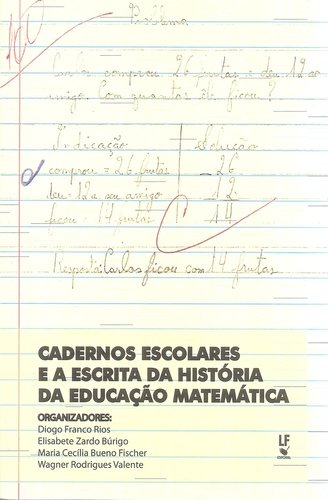 100
Problema
Carlos comprou 26 frutas e deu 12 ao
amigo. Com quantas êle ficou?
Indicação Solução
comprou = 26 frutas - 26
deu - 12 a seu amigo 12
ficou - 14 frutas 14
C
Resposta: Carlos ficou com 14 frutas
CADERNOS ESCOLARES
E A ESCRITA DA HISTÓRIA
DA EDUCAÇÃO MATEMÁTICA
ORGANIZADORES:
Diogo Franco Rios
Elisabete Zardo Búrigo
Maria Cecília Bueno Fischer
Wagner Rodrigues Valente
LF
EDITORIAL